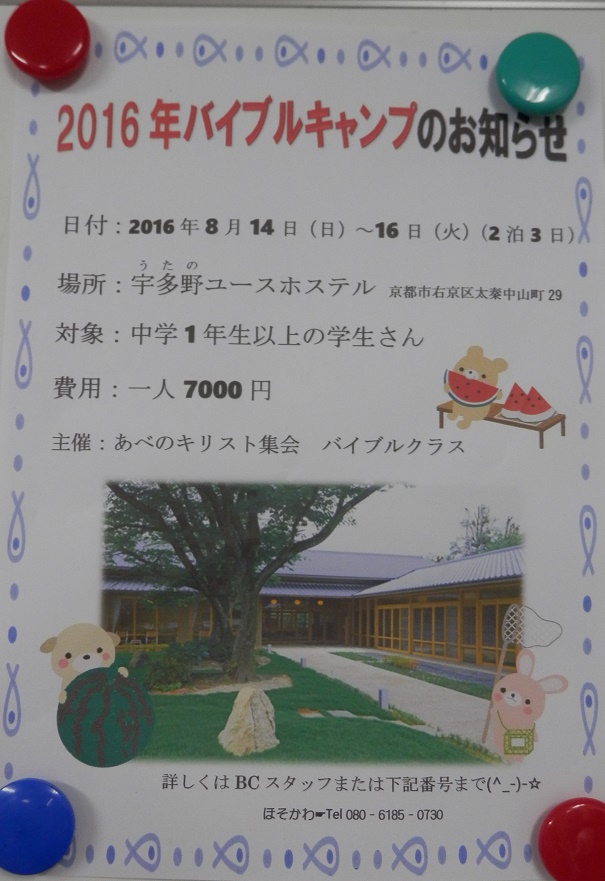 2016年バイブルキャンプのお知らせ
日付：2016年8月14日（日）～16日（火）（2泊3日）
うたの
場所：宇多野ユースホステル 京都市右京区太秦中山町29
対象：中学1年生以上の学生さん
費用：一人7000円
主催：あべのキリスト集会 バイブルクラス
詳しくはBCスタッフまたは下記番号まで(^_-)-☆
ほそかわ☛Tel 080－6185－0730